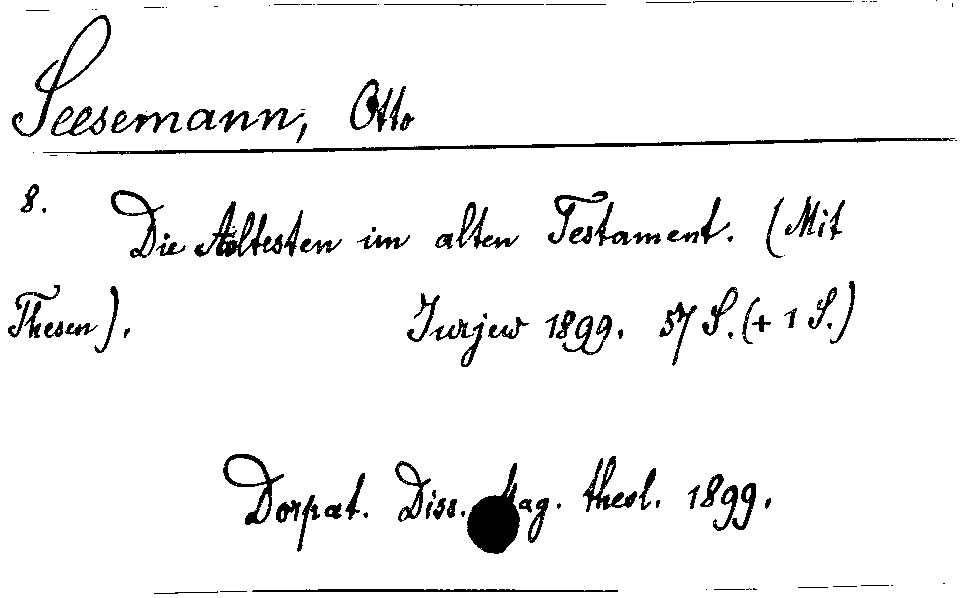 Seesemann, Otto
8. Die Ältesten im alten Testament. (Mit
Thesen). Jurjew 1899. 57 S. (+ 1 S.)
Dorpat. Diss. Mag. theol. 1899.